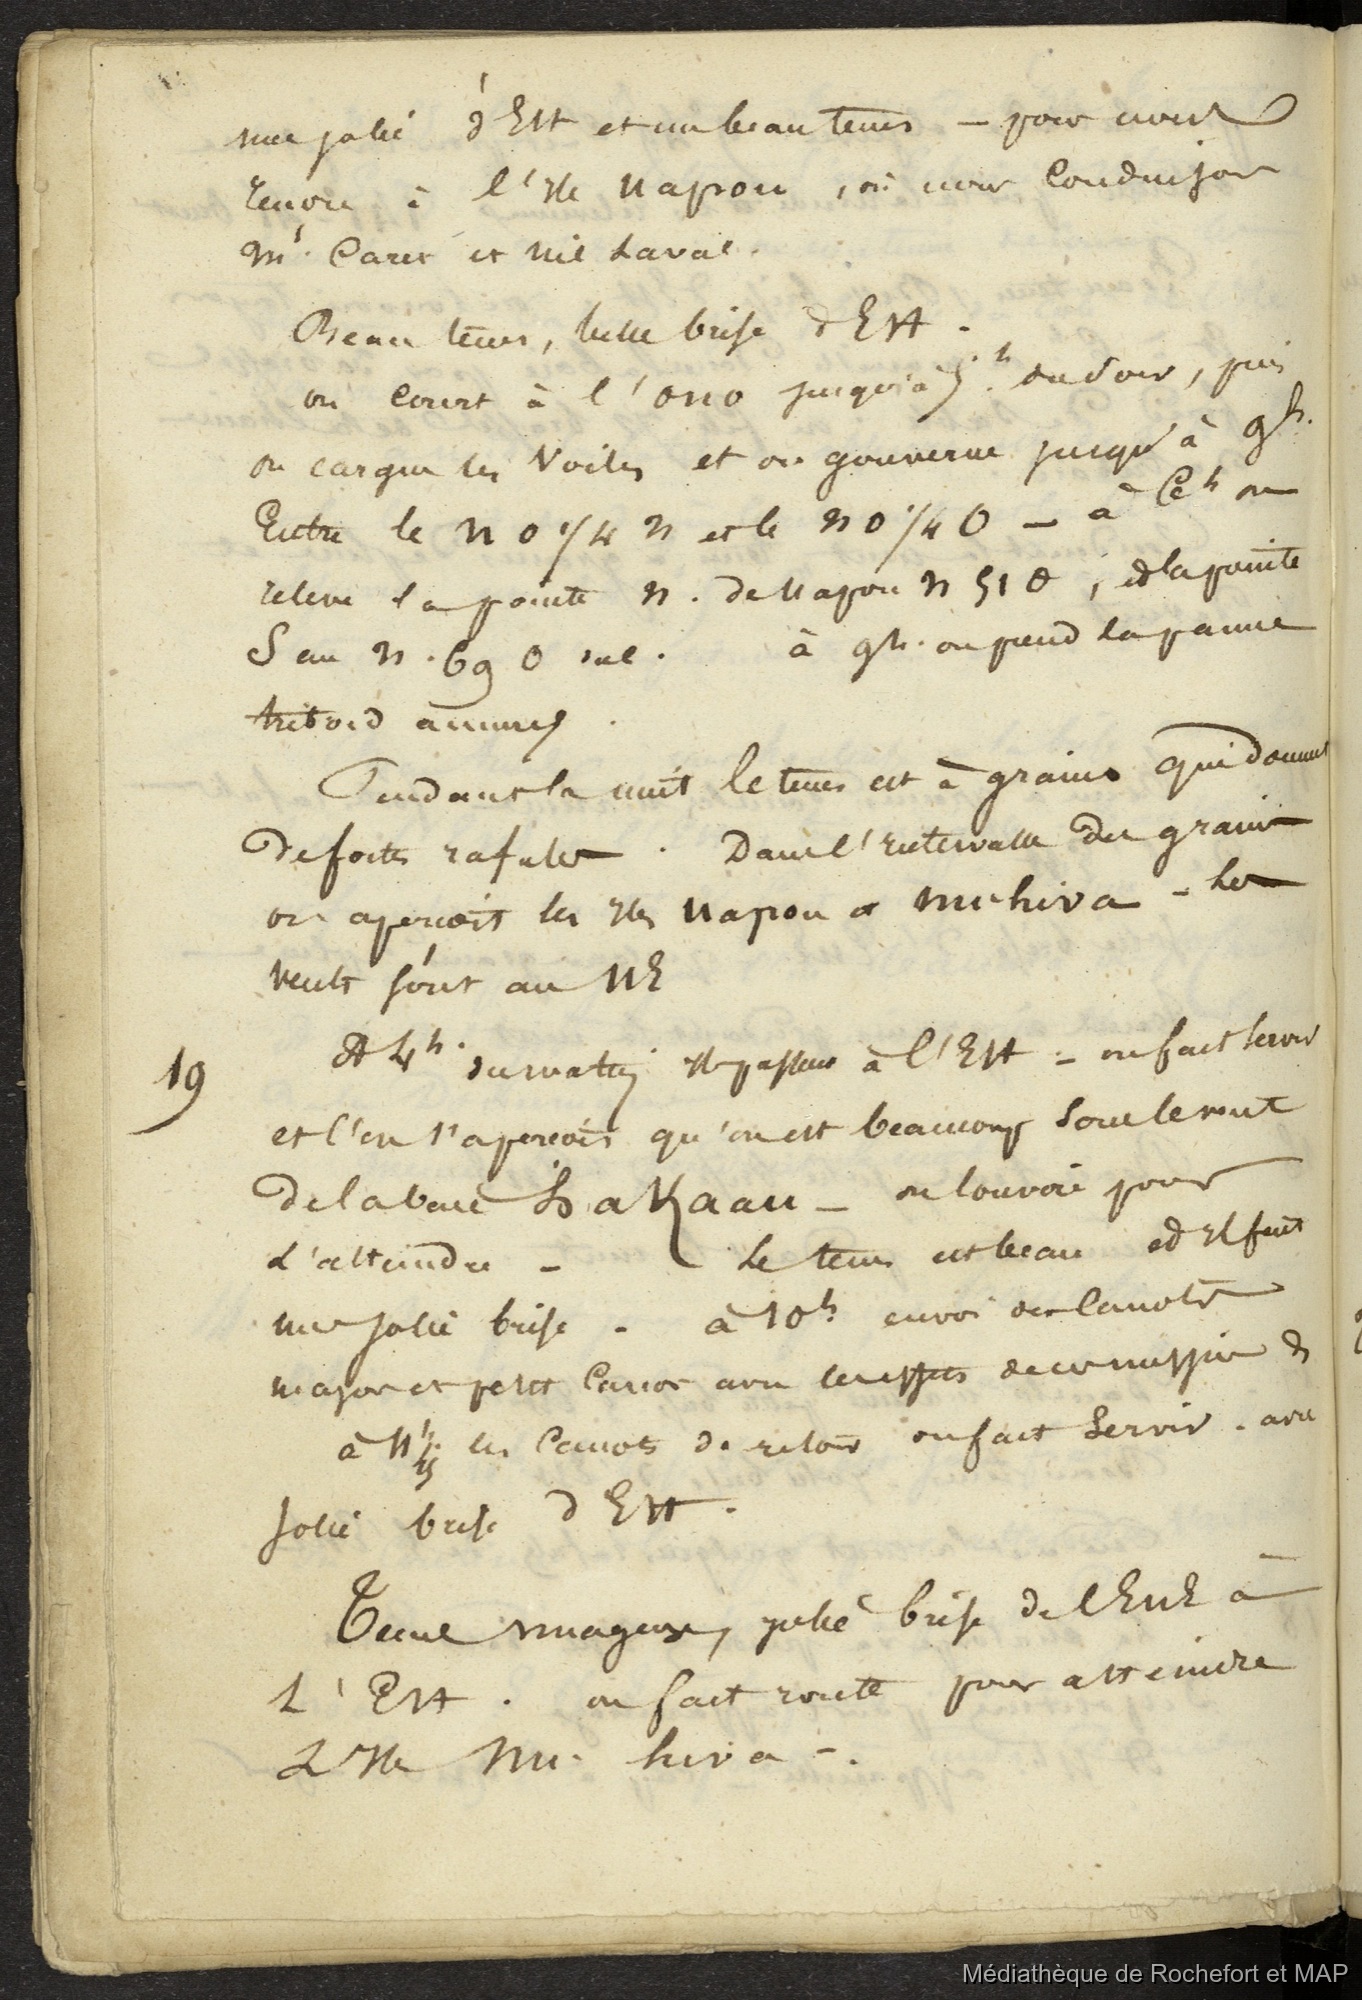 une jolie d'Est et un beau tems — pour nous
rendre à l'Ile Uapou, où nous conduisons
Mr. Caret et Mr Laval.
Beau tems, belle brise d'Est.
on court à l'ONO jusqu'à 5.h du soir, puis
on cargue les Voiles et on gouverne jusqu'à 9h.
Entre le NO 1/4 N et le NO 1/4 O — à 6h on
releve la pointe N. de Uapou N 51 O, et la pointe
S au N. 69 O
à 9h. on prend la panne
tribord amures.
Pendant la nuit le tems est à grains qui donnent
de fortes rafales. Dans l'Intervalle des grains
on aperçoit les Iles Uapou et Nu-hiva - Les
vents sont au NE
19
A 4h. du matin Ils passent à l'Est - on fait servir
et l'on s'aperçoit qu'on est beaucoup sous le vent
de la baie HaKaau — on louvoie pour
L'atteindre - Le tems est beau et Il fait
une jolie brise - à 10h envoi des Canots
major et petit Canot avec les effets de ces missres
à 11h les Canots de retour on fait Servir - avec
Jolie brise d'Est.
Tems nuageux, jolie brise de l'ENE à
L'Est. on fait route pour atteindre
L'Ile Nu-hiva -.
Médiathèque de Rochefort et MAP